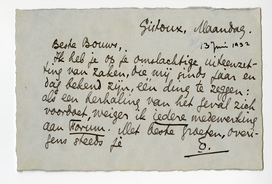 Gistoux, Maandag.
13 juni 1932
Beste Bouws,
Ik heb je op je omslachtige uiteenzet-
ting van zaken, die mij sinds jaar en
dag bekend zijn, één ding te zeggen:
als een herhaling van het geval zich
voordoet, weiger ik iedere medewerking
aan Forum. Met beste groeten, overi-
gens steeds je
D.